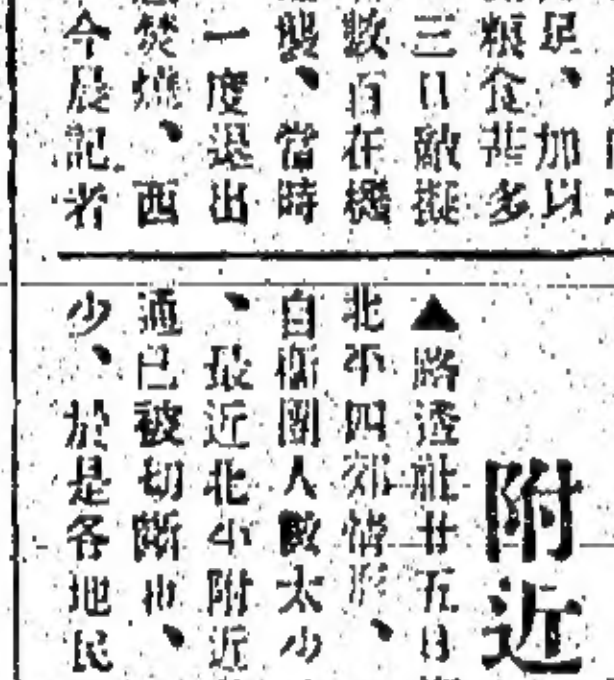 足、加以
糧食甚多
三日敵擬
數百在機
襲、當時
一度退出
焚燒、西
今晨記者
附近
▲路透社廿五日
北平四郊情形、
自衛團人數太少
、最近北平附近
通已被切斷也、
少、於是各地民